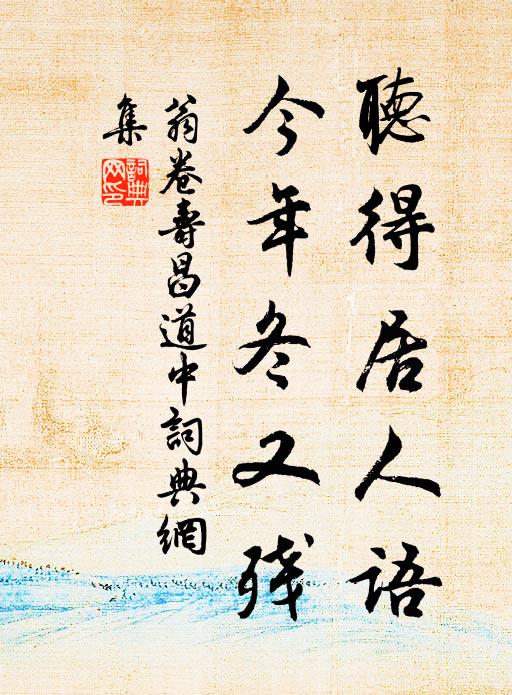 聽得居人語
今年冬又残
翁卷壽昌道中詞典網
集
詞典
网印